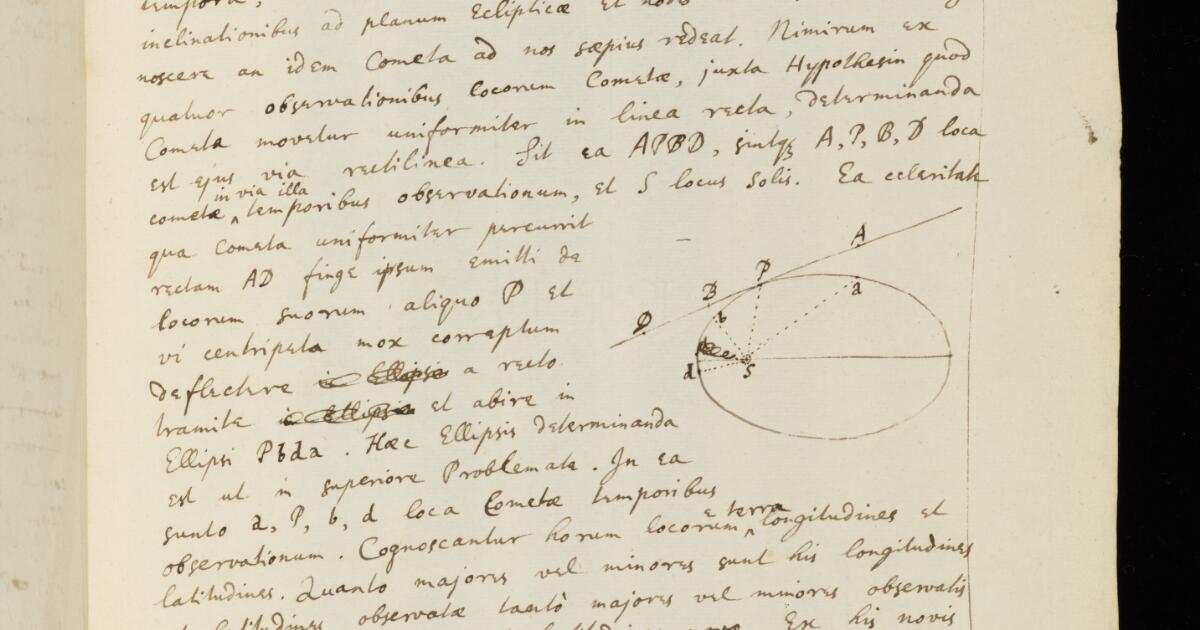 tempora,
inclinationibus ad planum Eclipticæ et nodo
noscere an idem Cometa ad nos sæpius redeat. Nimirum ex
quatuor observationibus locorum Cometæ, juxta Hypothesin quod
Cometa movetur uniformiter in linea recta, determinanda
est ejus via rectilinea. Sit ea APBD, sintq A, P, B, D loca
in via illa
cometæ ^ temporibus observationum, et S locus Solis. Ea celeritate
qua Cometa uniformiter percurrit
rectam AD finge ipsum emitti de
locorum suorum aliquo P et
vi centripeta mox correptum
deflectere a recto
tramite et abire in
Ellipsi Pbda. Hæc Ellipsis determinanda
est ut in superiore Problemate. In ea
sunto a, P, b, d loca Cometæ temporibus
e terra
observationum. Cognoscantur horum locorum ^ longitudines et
latitudines. Quanto majores vel minores sunt his longitudines
latitudines observatæ tantò majores vel minores observatis
Ex his novis
A
P
a
B
b
D
d
S